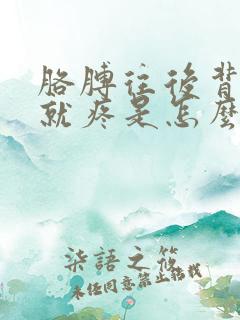 胳膊往後背
就疼是怎麼
柒語之筱
未经同意禁止转载